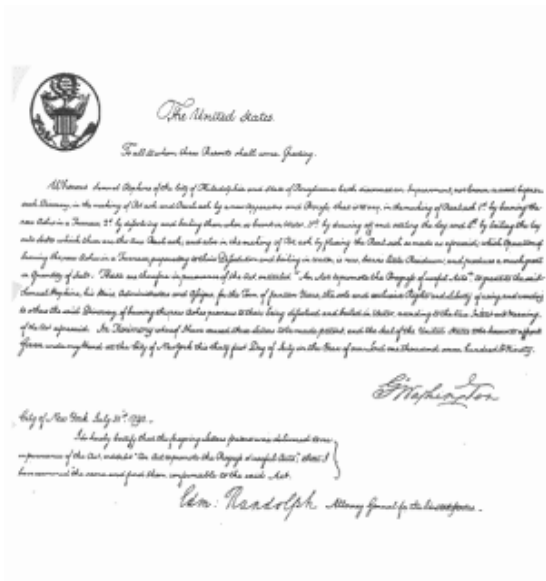 The United States
To all to whom these Presents shall come, Greeting.
Whereas Samuel Hopkins of the City of Philadelphia and State of Pensylvania hath discovered an Improvement, not known or used before
such Discovery, in the making of Pot ash and Pearl ash by a new Apparatus and Process, that is to say, in the making of Pearl ash 1st. by burning the
raw Ashes in a Furnace, 2d. by dissolving and boiling them when so burnt in Water, 3rd. by drawing off and settling the Ley, and 4th. by boiling the Ley
into Salts which then are the true Pearl ash; and also in the making of Pot ash by fluxing the Pearl ash so made as aforesaid; which Operation of
burning the raw Ashes in a Furnace, preparatory to their Dissolution and boiling in Water, is new, leaves little Residuum; and produces a much greater
Quantity of Salt: These are therefore in pursuance of the Act, entitled "An Act to promote the Progress of useful Arts", to grant to the said
Samuel Hopkins, his Heirs, Administrators and Assigns, for the Term of fourteen Years, the sole and exclusive Right and Liberty of using and vending
to others the said Discovery of burning the raw Ashes previous to their being dissolved and boiled in Water, according to the true Intent and Meaning
of the Act aforesaid. In Testimony whereof I have caused these Letters to be made patent, and the Seal of the United States to be hereunto affixed
Given under my Hand at the City of New York this thirty first Day of July in the Year of our Lord one thousand seven hundred & Ninety.
G Washington
City of New York July 31st. 1790.
I do hereby certify that the foregoing Letters patent were delivered to me
in pursuance of the Act, entitled "An Act to promote the Progress of useful Arts"; that I
have examined the same and find them conformable to the said Act.
Edm: Randolph Attorney General for the United States.